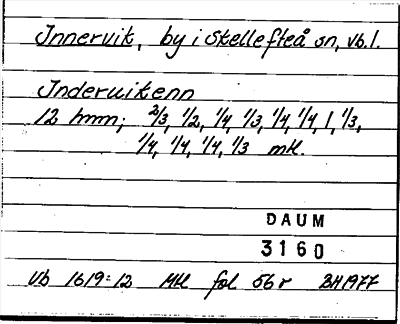 Innervik, by i Skellefteå sn, vb.l.
Inderuikenn
12 hmm; 2/3, 1/2, 1/4, 1/3, 1/4, 1/4, 1, 1/3,
1/4, 1/4, 1/4, 1/3 mtl.
DAUM
3160
Vb 1619:12 Mtl fol 56r BH1977